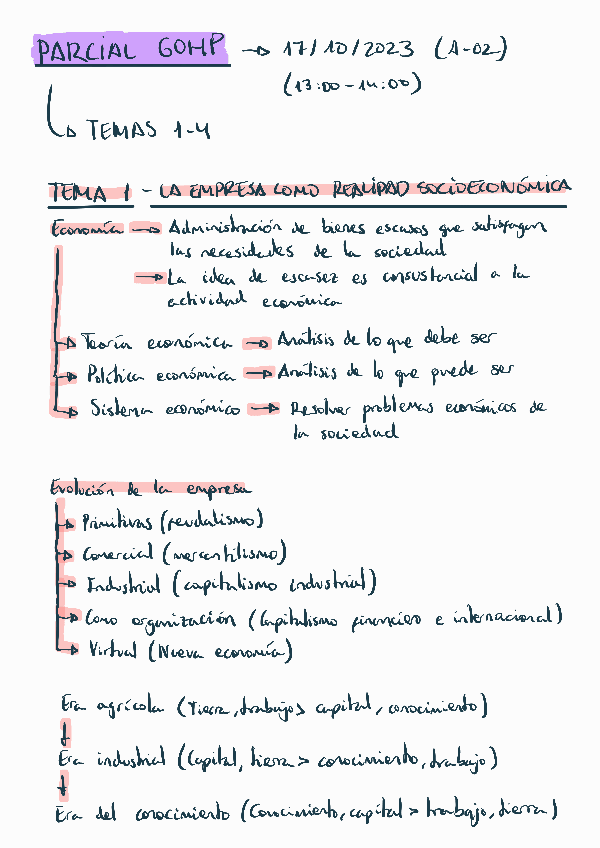 PARCIAL GOMP → 17/10/2023 (A-02)
(13:00-14:00)
↳ TEMAS 1-4
TEMA 1 - LA EMPRESA COMO REALIDAD SOCIOECONÓMICA
Economía → Administración de bienes escasos que satisfagan
las necesidades de la sociedad
→ La idea de escasez es consustancial a la
actividad económica
→ Teoría económica → Análisis de lo que debe ser
→ Política económica → Análisis de lo que puede ser
→ Sistema económico → Resolver problemas económicos de
la sociedad
Evolución de la empresa
→ Primitivas (feudalismo)
→ Comercial (mercantilismo)
→ Industrial (capitalismo industrial)
→ Como organización (Capitalismo financiero e internacional)
→ Virtual (Nueva economía)
Era agrícola (Tierra, trabajo > capital, conocimiento)
↓
Era industrial (Capital, tierra > conocimiento, trabajo)
↓
Era del conocimiento (Conocimiento, capital > trabajo, tierra)